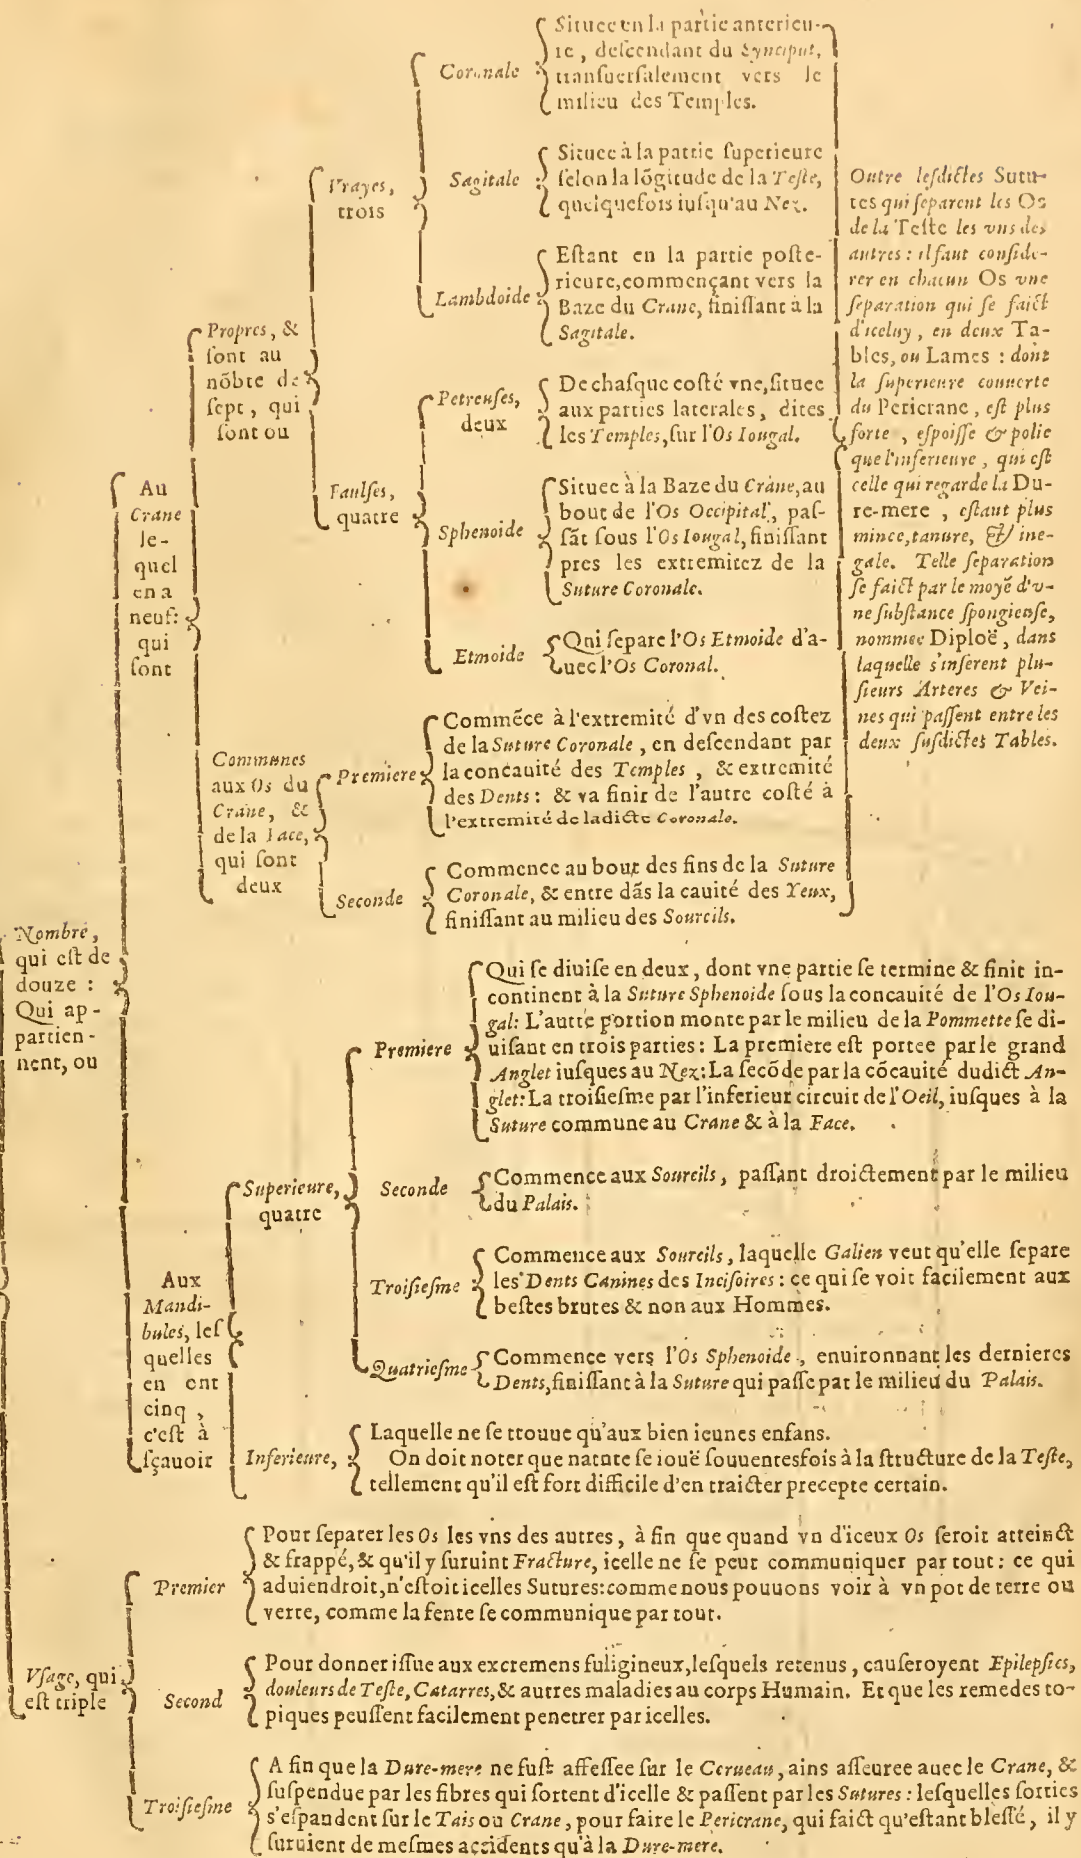 Nombre,
qui eſt de
douze :
Qui ap-
partien-
nent, ou
Au
Crane
le-
quel
en a
neuf:
qui
ſont
Propres, &
ſont au
nõbre de
ſept, qui
ſont ou
Vrayes,
trois
Coronale
Situee en la partie anterieu-
re, deſcendant du Synciput,
tranſuerſalement vers le
milieu des Temples.
Sagitale
Situee à la partie ſuperieure
ſelon la lõgitude de la Teſte,
quelquefois iuſqu'au Nez.
Lambdoide
Eſtant en la partie poſte-
rieure, commençant vers la
Baze du Crane, finiſſant à la
Sagitale.
Faulſes,
quatre
Petreuſes,
deux
De chaſque coſté vne, ſituee
aux parties laterales, dites
les Temples, ſur l'Os Iougal.
Sphenoide
Situee à la Baze du Crane, au
bout de l'Os Occipital, paſ-
ſãt ſous l'Os Iougal, finiſſant
pres les extremitez de la
Suture Coronale.
Etmoide
Qui ſepare l'Os Etmoide d'a-
uec l'Os Coronal.
Communes
aux Os du
Crane, &
de la Face,
qui ſont
deux
Premiere
Commẽce à l'extremité d'vn des coſtez
de la Suture Coronale, en deſcendant par
la concauité des Temples, & extremité
des Dents : & va finir de l'autre coſté à
l'extremité de ladicte Coronale.
Seconde
Commence au bout des fins de la Suture
Coronale, & entre dãs la cauité des Yeux,
finiſſant au milieu des Sourcils.
Outre leſdictes Sutu-
res qui ſeparent les Os
de la Teſte les vns des
autres : il faut conſide-
rer en chacun Os vne
ſeparation qui ſe faict
d'iceluy, en deux Ta-
bles, ou Lames : dont
la ſuperieure couuerte
du Pericrane, eſt plus
forte, eſpoiſſe & polie
que l'inferieure, qui eſt
celle qui regarde la Du-
re-mere, eſtant plus
mince, tanure, & ine-
gale. Telle ſeparation
ſe faict par le moyẽ d'v-
ne ſubſtance ſpongieuſe,
nommee Diploë, dans
laquelle s'inſerent plu-
ſieurs Arteres & Vei-
nes qui paſſent entre les
deux ſuſdictes Tables.
Aux
Mandi-
bules, leſ
quelles
en ont
cinq,
c'eſt à
ſçauoir
Superieure,
quatre
Premiere
Qui ſe diuiſe en deux, dont vne partie ſe termine & finit in-
continent à la Suture Sphenoide ſous la concauité de l'Os Iou-
gal: L'autre portion monte par le milieu de la Pommette ſe di-
uiſant en trois parties : La premiere eſt portee par le grand
Anglet iuſques au Nez: La ſecõde par la cõcauité dudict An-
glet: La troiſieſme par l'inferieur circuit de l'Oeil, iuſques à la
Suture commune au Crane & à la Face.
Seconde
Commence aux Sourcils, paſſant droictement par le milieu
du Palais.
Troiſieſme
Commence aux Sourcils, laquelle Galien veut qu'elle ſepare
les Dents Canines des Inciſoires : ce qui ſe voit facilement aux
beſtes brutes & non aux Hommes.
Quatrieſme
Commence vers l'Os Sphenoide, enuironnant les dernieres
Dents, finiſſant à la Suture qui paſſe par le milieu du Palais.
Inferieure,
Laquelle ne ſe trouue qu'aux bien ieunes enfans.
On doit noter que nature ſe iouë ſouuentesfois à la ſtructure de la Teſte,
tellement qu'il eſt fort difficile d'en traicter precepte certain.
Vſage, qui
eſt triple
Premier
Pour ſeparer les Os les vns des autres, à fin que quand vn d'iceux Os ſeroit atteinct
& frappé, & qu'il y ſuruint Fracture, icelle ne ſe peut communiquer par tout : ce qui
aduiendroit, n'eſtoit icelles Sutures: comme nous pouuons voir à vn pot de terre ou
verre, comme la fente ſe communique par tout.
Second
Pour donner iſſue aux excremens fuligineux, leſquels retenus, cauſeroyent Epilepſies,
douleurs de Teſte, Catarres, & autres maladies au corps Humain. Et que les remedes to-
piques peuſſent facilement penetrer par icelles.
Troiſieſme
A fin que la Dure-mere ne fuſt affeſſee ſur le Cerueau, ains aſſeuree auec le Crane, &
ſuſpendue par les fibres qui ſortent d'icelle & paſſent par les Sutures : leſquelles ſorties
s'eſpandent ſur le Tais ou Crane, pour faire le Pericrane, qui faict qu'eſtant bleſſé, il y
ſuruient de meſmes accidents qu'à la Dure-mere.